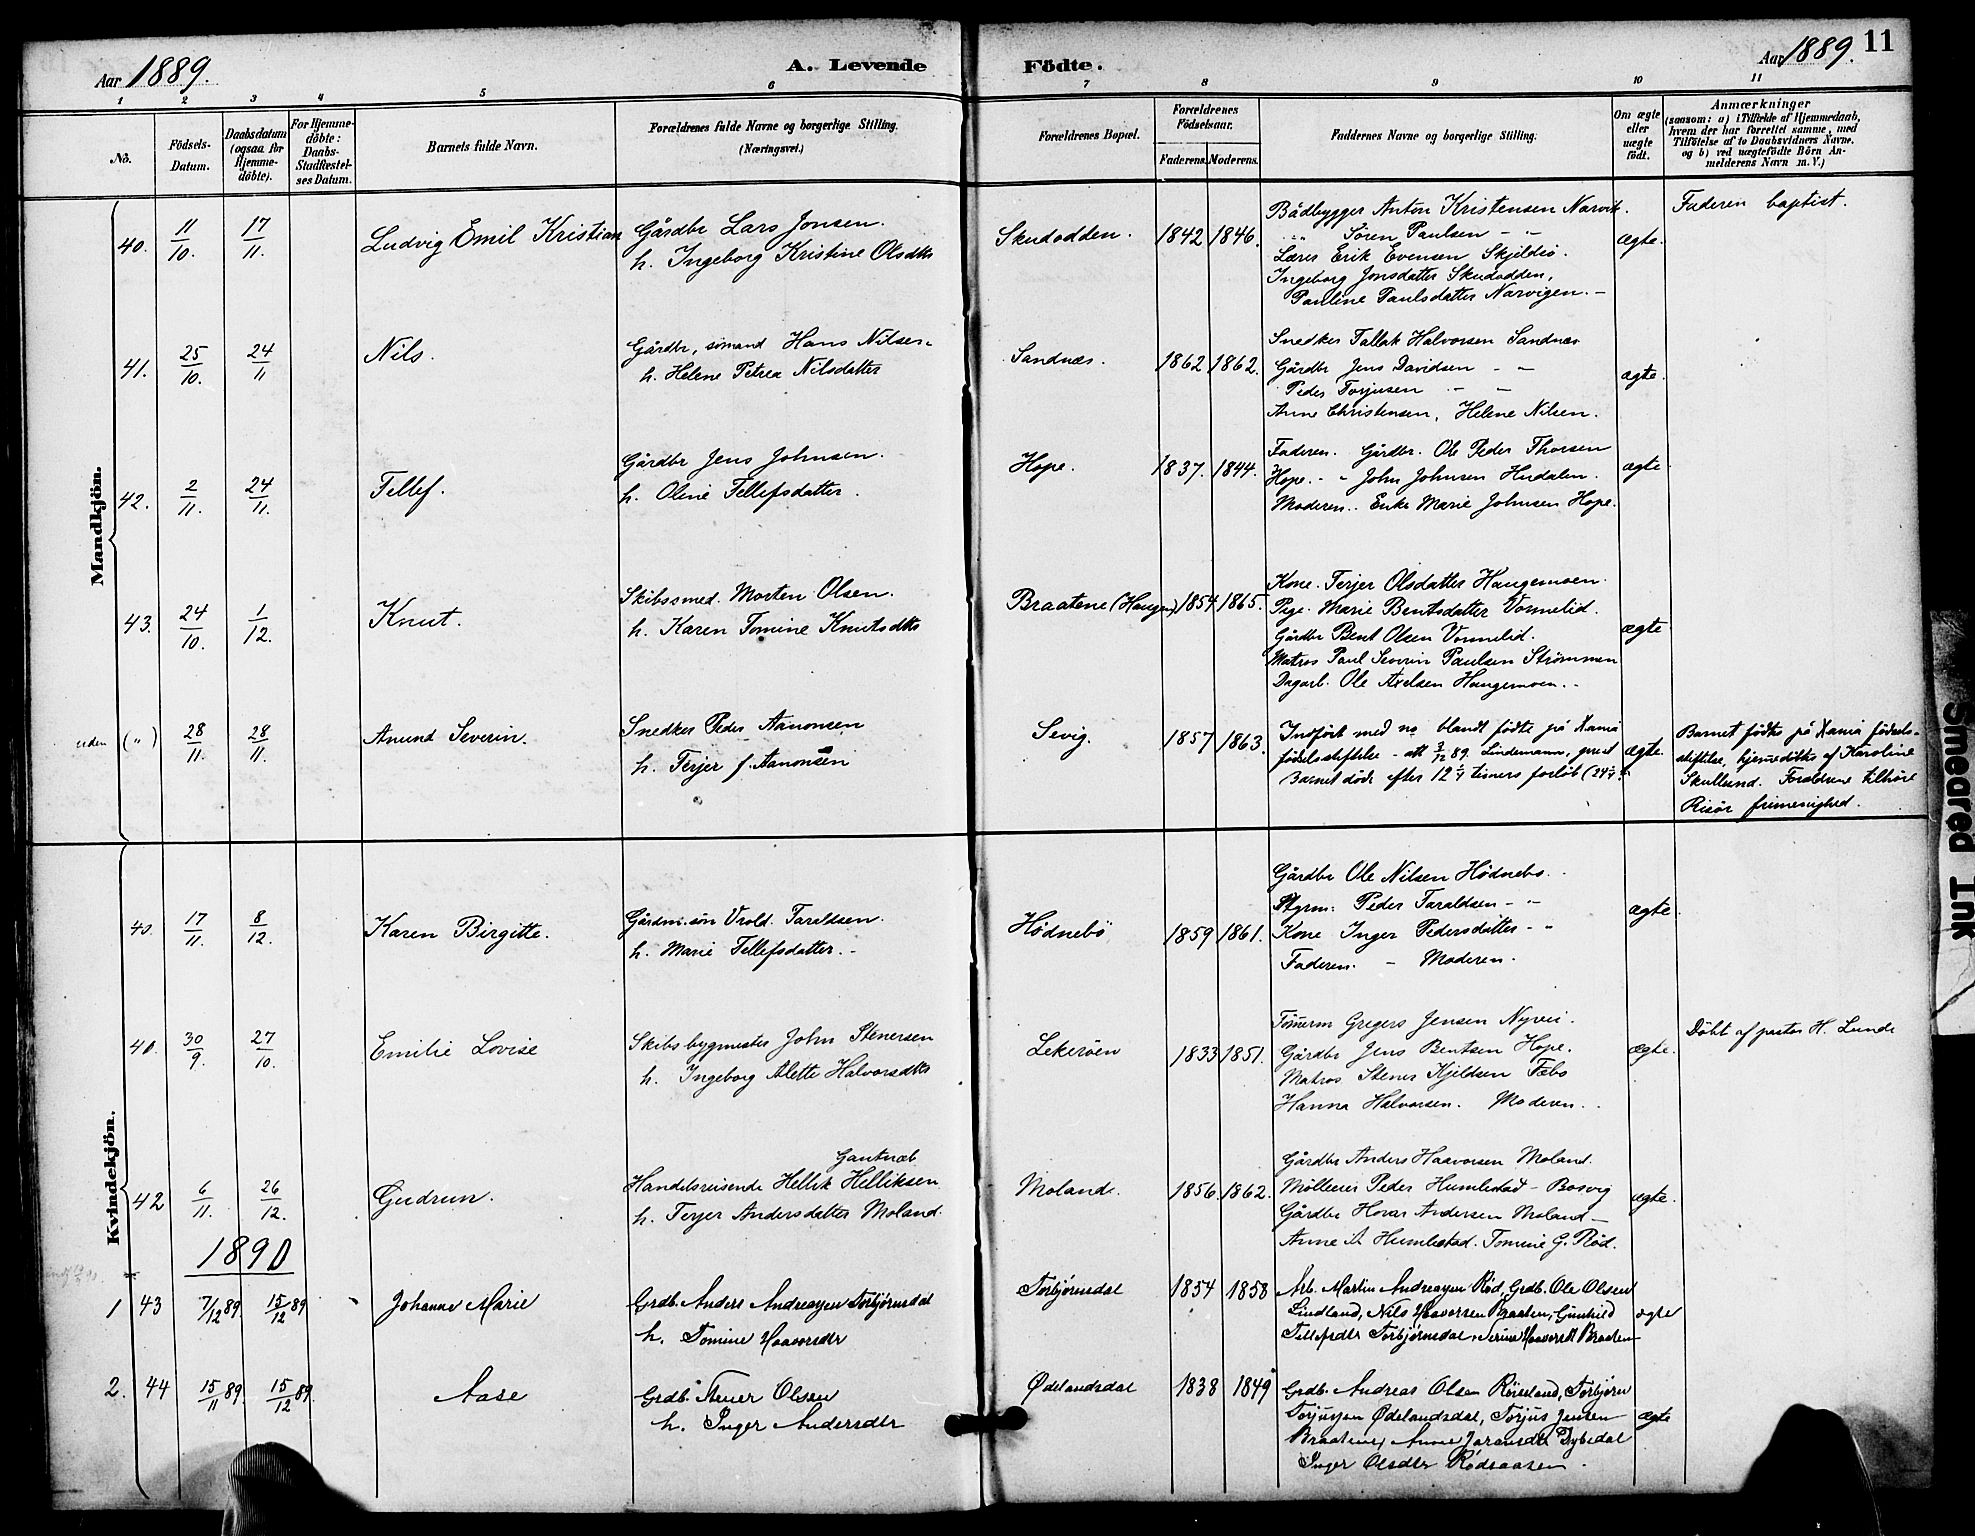 Aar 1889.
A. Levende Födte.
Aar 1889. 11
1 2 3 4 5 6 7 8 9 10 11
No.
Födsels-Datum.
Daabsdatum (ogsaa for Hjemme-döbte).
For Hjemme-döbte: Daabs-Stadfæstel-ses Datum.
Barnets fulde Navn.
Forældrenes fulde Navne og borgerlige Stilling.
(Næringsvei.)
Forældrenes Bopæl.
Forældrenes Födselsaar.
Faderens. Moderens.
Faddernes Navne og borgerlige Stilling.
Om ægte eller uægte födt.
Anmærkninger
(saasom: a) i Tilfælde af Hjemmedaab,
hvem der har forrettet samme, med
Tilföielse af to Daabsvidners Navne,
og b) ved uægtefödte Börn An-
melderens Navn m. V.)
Mandkjön.
40. 11/10. 17/11. Ludvig Emil Kristian Gårdbr Lars Jonsen.
h. Ingeborg Kristine Olsdtr
Skudodden. 1842 1846.
Bådbygger Anton Kristensen Narvik.
„ Sören Paulsen - -
Lærer Erik Evensen Skjeldsö.
Ingeborg Jonsdatter Skudodden,
Pauline Paulsdatter Narvigen. -
ægte.
Faderen baptist.
41. 25/10. 24/11 Nils. Gårdbr, sömand Hans Nilsen.
h. Helene Petrea Nilsdatter
Sandnæs. 1862 1862.
Snedker Tallak Halvorsen Sandnæs
Gårdbr Jens Davidsen - -
Peder Torjusen - -
Anne Christensen, Helene Nilsen.
ægte.
42. 2/11. 24/11. Tellef. Gårdbr Jens Johnsen.
h. Oline Tellefsdatter.
Hope. 1837. 1844.
Faderen. Gårdbr. Ole Peder Thorsen
Hope. - „ John Johnsen Hudalen.
Moderen.. Enke Marie Johnsen Hope.
ægte
43. 24/10. 1/12. Knut. Skibssmed. Morten Olsen.
h. Karen Tomine Knutsdtr
Braatene (Haugen) 1854 1865.
Kone. Terjer Olsdatter Haugemoen.
Pige. Marie Bentsdatter Vormelid.
Gårdbr Bent Olsen Vormelid.
Matros Paul Severin Paulsen Strömmen
Dagarb. Ole Axelsen Haugemoen..
ægte
uden („) 28/11. 28/11. Amund Severin. Snedker Peder Aanonsen
h. Terjer f. Aanonsen
Sevig. 1857 1863.
Indfört med no blandt födte på Xania
födselsstiftelse - att 3/12 89. Lindemann, præst
Barnet döde efter 12 1/4 timers forlöb
ægte.
Barnet födtes på Xania födsels-
stiftelse, hjemmedöbtes af Karoline
Skullerud. Forældrene tilhöre
Risör frimenighed.
Kvindekjön.
40. 17/11. 8/12. Karen Birgitte. Gårdm.sön Vrold Taraldsen.
h. Marie Tellefsdatter. -
Hödnebö 1859 1861.
Gårdbr Ole Nilsen Hödnebö.
Styrm. Peder Taraldsen - „
Kone Inger Pedersdatter - „
Faderen. - Moderen.
ægte.
40. 30/9. 27/10. Emilie Lovise Skibsbygmester John Stenersen
h. Ingeborg Alette Halvorsdtr
Lekeröen 1833 1851.
Tömerm Gregers Jensen Nyvei.
Gårdbr Jens Bentsen Hope.
Matros Stener Kjeldsen Febö
Hanna Halvorsen. Moderen..
ægte.
Döbt af pastor H. Lunde
42 6/11. 26/12. Gudrun. Gautnæb
Handelsreisende Hellik Helliksen
h. Terjer Andersdatter Moland.
Moland. 1856. 1862.
Gårdbr Anders Haavorsen Moland.
Mölleeier Peder Humlestad - Bosvig
Gårdbr Hovar Andersen Moland -
Anne A Humlestad. Tomine G. Röd.
ægte.
1890
1 43 7/12 89. 15/12 89 Johanne Marie Grdb. Anders Andreassen Torbjörnsdal
h. Tomine Haavorsdtr
Torbjörnsdal 1854 1858
Arb. Martin Andreassen Röd, Grdb. Ole Olsen
Lindland, Nils Haavorsen Braaten, Gunhild
Tellefsdtr Torbjörnsdal, Serine Haavorsdt Braaten
ægte
2. 44 15/11 89. 15/12 89. Aase Grdb. Stener Olsen
h. Inger Andersdtr
Ödelandsdal 1838 1849
Grdb. Andreas Olsen Röiseland, Torbjörn
Torjussen Ödelandsdal, Torjus Jensen
Braatene, Anne Joransdt Dybedal
Inger Olsdtr Rödsaasen.
ægte
Smeared Ink